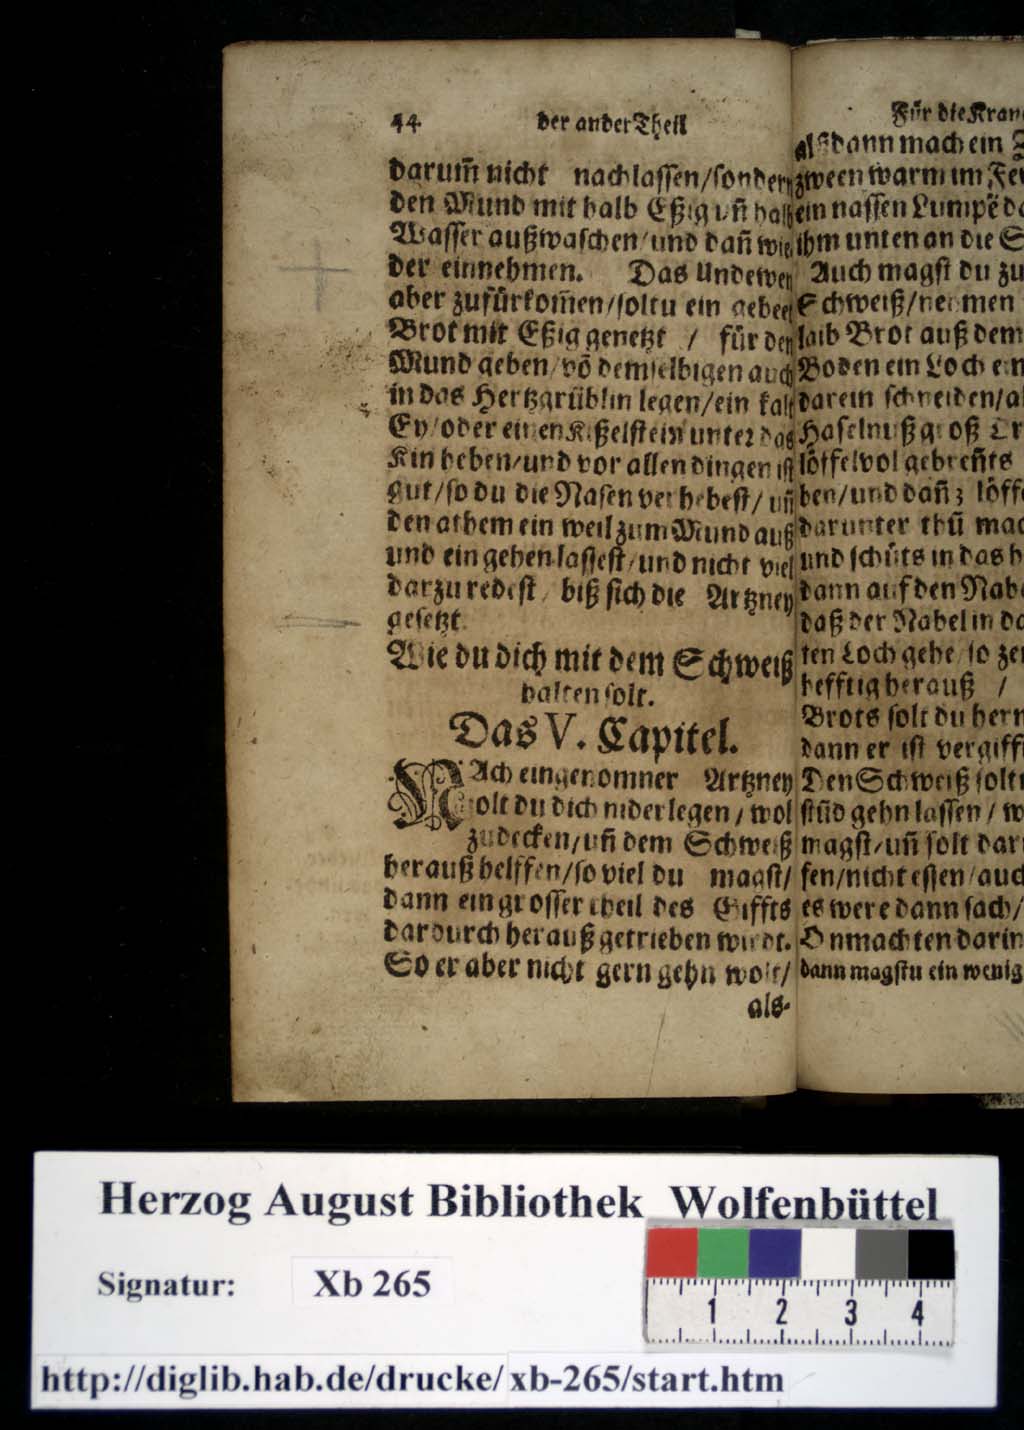 44 der ander Theil
darum̃ nicht nachlassen/sondern
den Mund mit halb Eßig uñ halb
Wasser außwaschen/und dañ wie
der einnehmen. Das Undewen
aber zufürkom̃en/soltu ein gebeet
Brot mit Eßig genetzt / für den
Mund geben/võ demselbigen auch
in das Hertzgrüblin legen/ein kalt
Ey/oder einen Kißelstein unter das
Kin heben/und vor allen dingen ist
gut/so du die Nasen verhebest/uñ
den athem ein weil zum Mund auß
und ein gehen lassest/und nicht viel
darzu redest/ biß sich die Artzney
gesetzt.
Wie du dich mit dem Schweiß
halten solt.
Das V. Capitel.
NAch eingenomner Artzney
solt du dich niderlegen/wol
zudecken/uñ dem Schweiß
herauß helffen/so viel du magst/
dann ein grosser theil des Giffts
dardurch herauß getrieben wirdt.
So er aber nicht gern gehn wolt/
als-
Für die Kran
alßdann mach ein
zween warm im Feu
ein nassen Lumpẽ da
ihm unten an die S
Auch magst du zu
Schweiß/nemmen
laib Brot auß dem
Boden ein Loch ein
darein schneiden/al
Haselnuß groß Tr
löffelvol gebreñts
ben/und dañ 3 löffe
darunter thũ mac
und schüts in das h
dann auf den Nabe
daß der Nabel in da
ten Loch gehe/so zeu
hefftig herauß /
Brots solt du hern
dann er ist vergiffi
Den Schweiß soltu
stũd gehn lassen/ w
magst/uñ solt dari
fen/nicht essen/auch
es were dann sach/
Onmachten darin
dann magstu ein wenig
Herzog August Bibliothek Wolfenbüttel
Signatur: Xb 265
1 2 3 4
http://diglib.hab.de/drucke/xb-265/start.htm